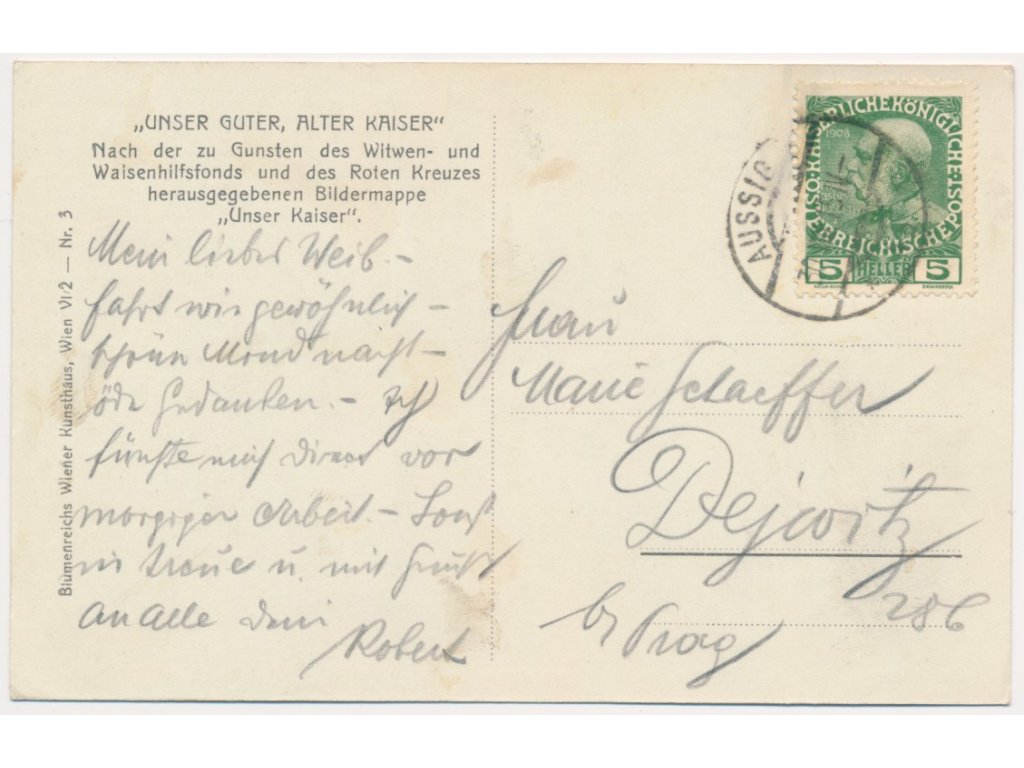 „UNSER GUTER, ALTER KAISER"
Nach der zu Gunsten des Witwen- und
Waisenhilfsfonds und des Roten Kreuzes
herausgegebenen Bildermappe
„Unser Kaiser".
Blumenreichs Wiener Kunsthaus, Wien VI/2 — Nr. 3
Mein liebes Weib. –
fahrt wie gewöhnlich –
schöne Mondnacht –
öde Gedanken. – Ich
fürchte mich direct vor
morgiger Arbeit. – Sonst
in Treue u. mit Gruß
an Alle Dein
Robert
AUSSIG
KAISERLICHE KÖNIGLICHE ÖSTERREICHISCHE POST
1908
5 HELLER 5
Frau
Marie Schaeffer
Dejwitz
286
b/ Prag